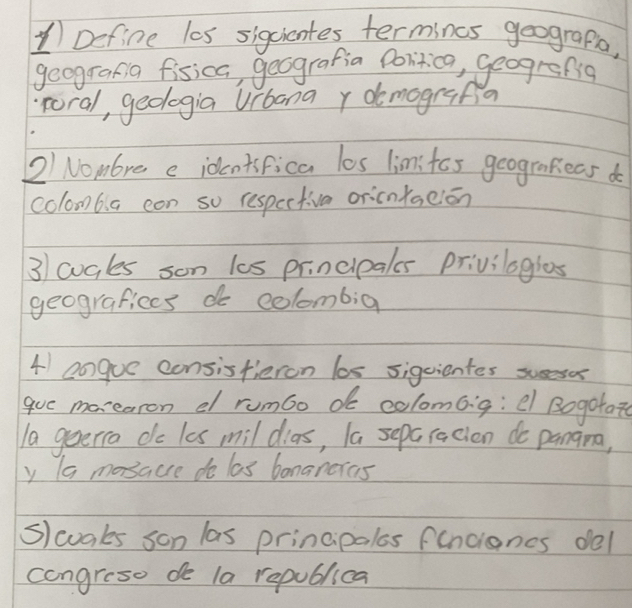 1) Define los siguientes terminos geografia,
geografia fisica, geografia Politica, geografia
rural, geologia Urbana y demografia
2) Nombre e identifica los limites geograficas de
colombia con su respectiva orientación
3) cuales son los principales privilegios
geograficos de colombia
4) enque consistieron los siguientes sucesos
que marcaron el rumbo de colombia: el Bogotazo
la guerra de los mil dias, la separacion de panama,
y la masacre de las bananeras
5) cuales son las principales funciones del
congreso de la republica